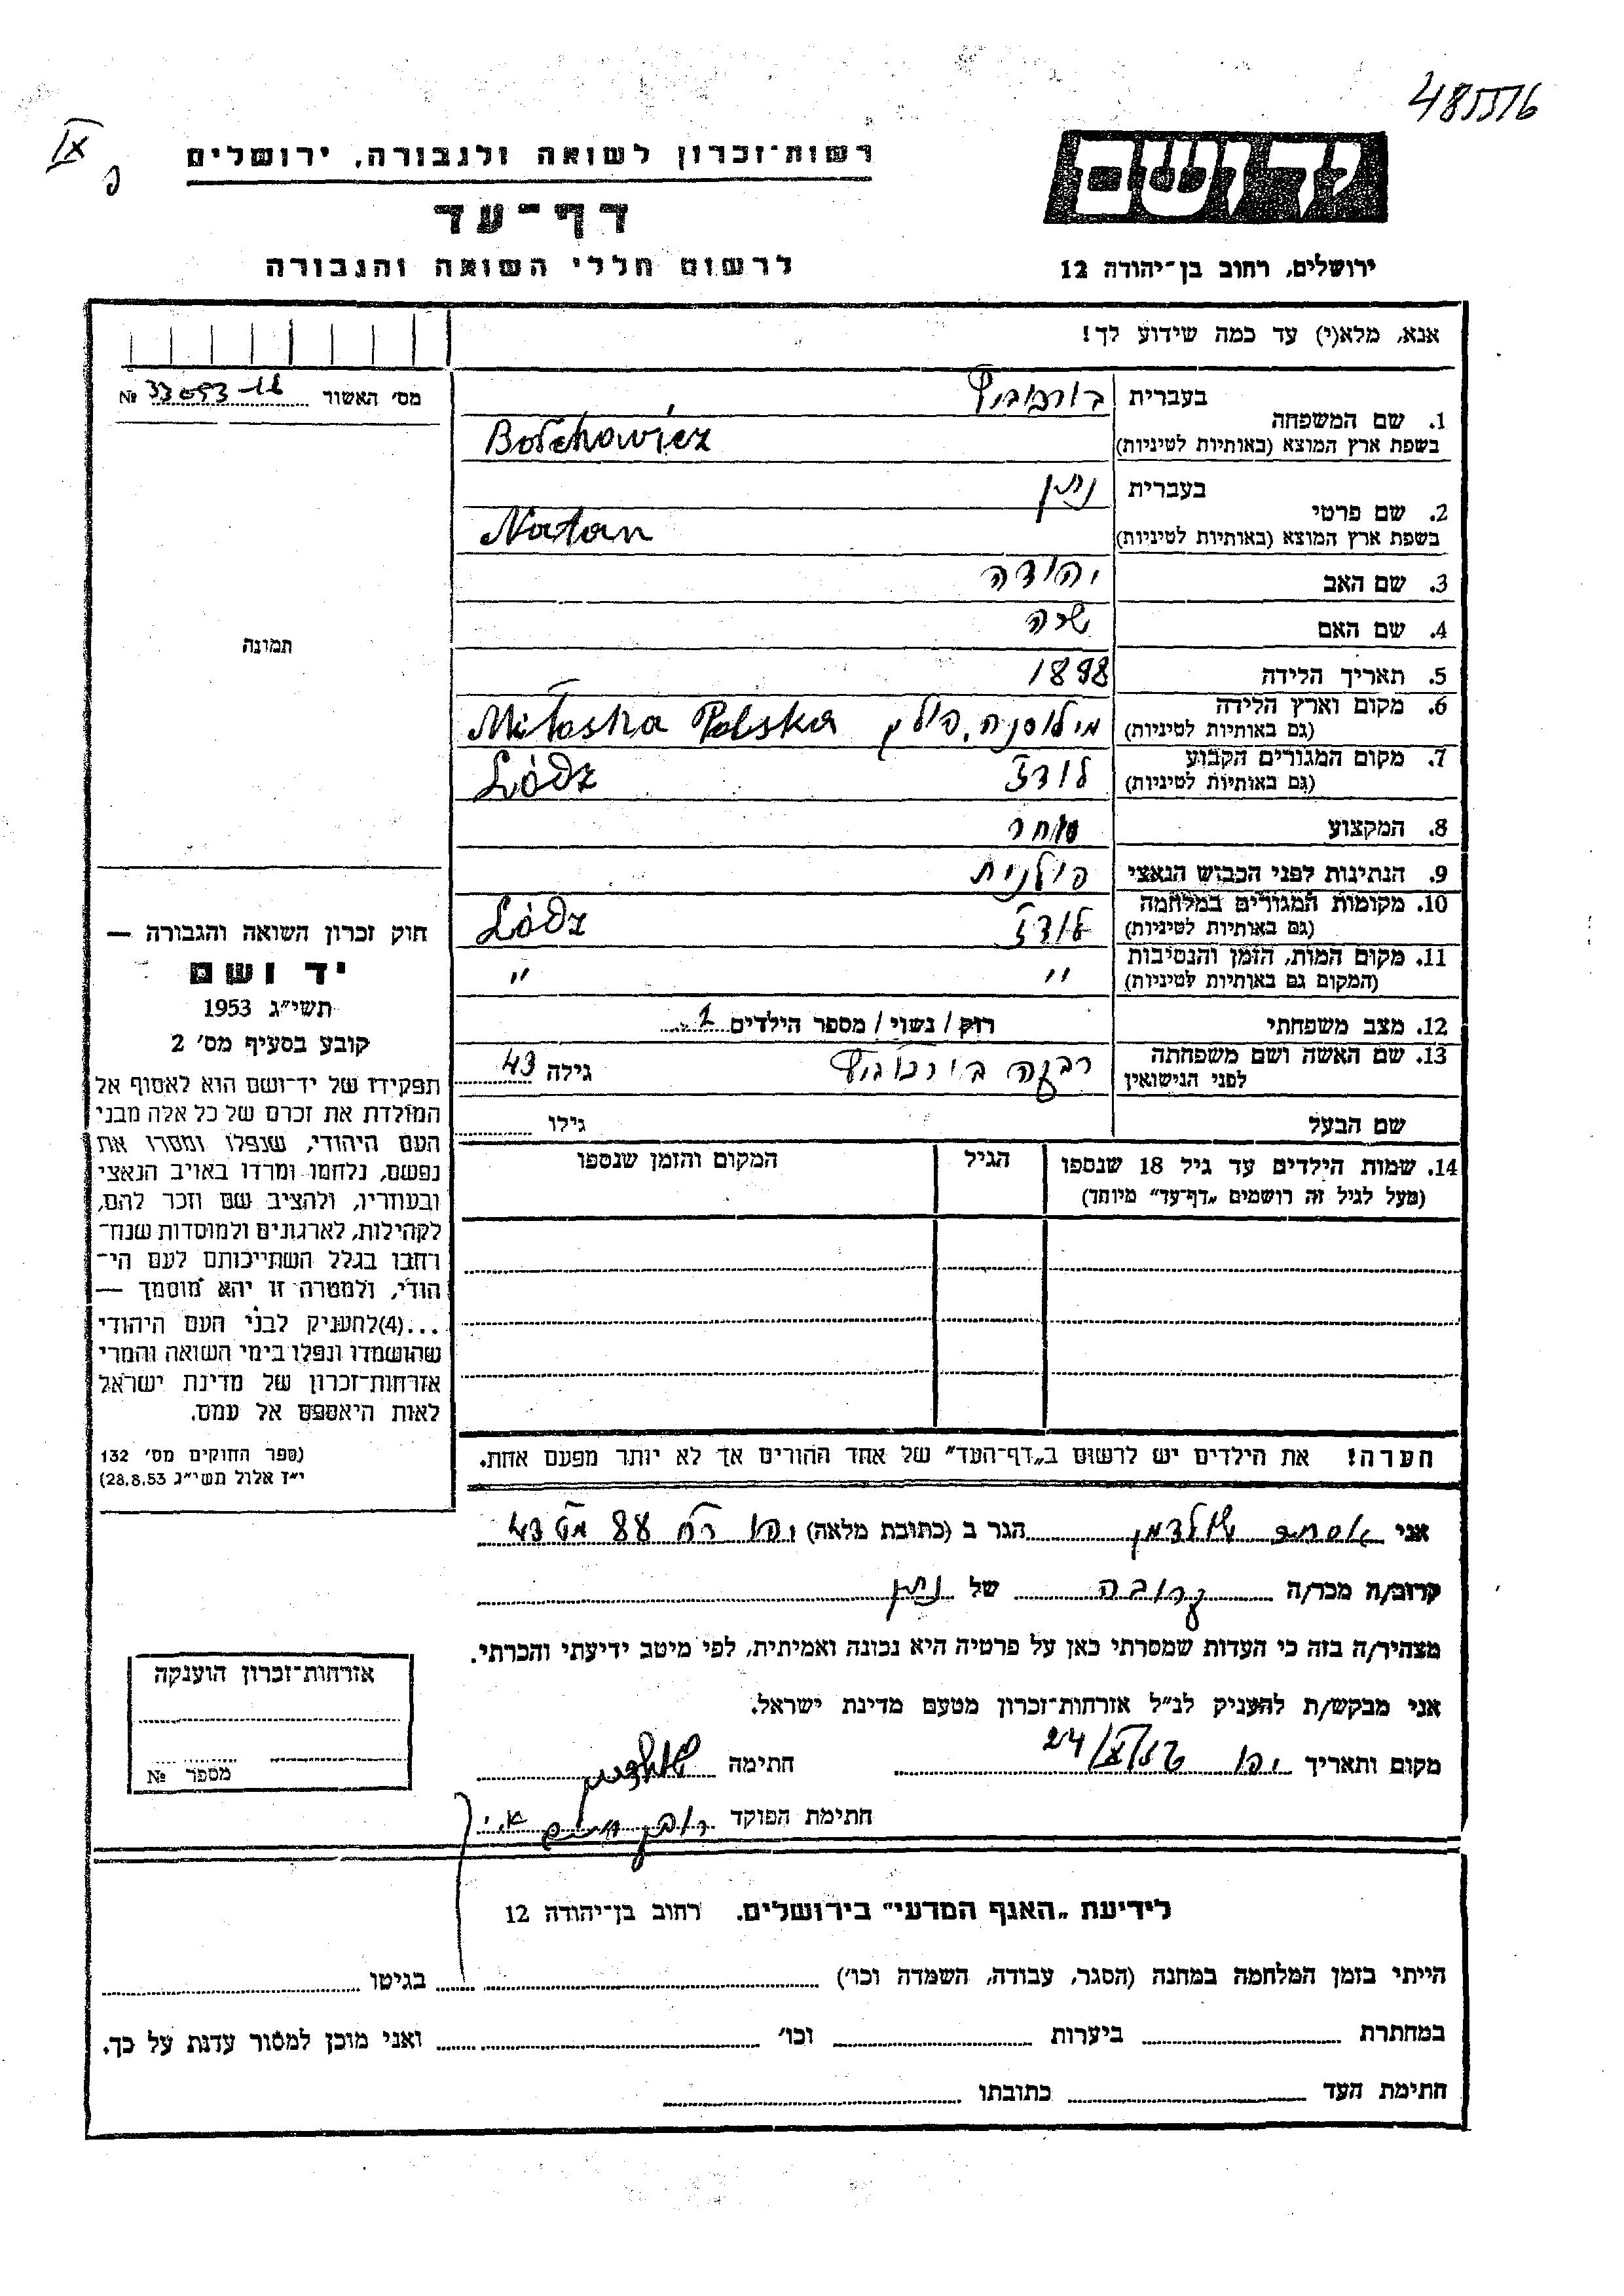 485576
IX
פ
ידושם
רשות־זכרון לשואה ולגבורה, ירושלים
דף־עד
לרשום חללי השואה והגבורה
ירושלים, רחוב בן־יהודה 12
אנא, מלא(י) עד כמה שידוע לך!
מס׳ האשור 33053-16 №
בעברית בורכוביץ
1. שם המשפחה
בשפת ארץ המוצא (באותיות לטיניות) Borchowicz
בעברית נתן
2. שם פרטי
בשפת ארץ המוצא (באותיות לטיניות) Natan
3. שם האב יהודה
4. שם האם שרה
5. תאריך הלידה 1898
6. מקום וארץ הלידה
(גם באותיות לטיניות) מילוסנה, פולין Miłosna Polska
7. מקום המגורים הקבוע
(גם באותיות לטיניות) לודז Łódz
8. המקצוע סוחר
9. הנתינות לפני הכבוש הנאצי פולנית
10. מקומות המגורים במלחמה
(גם באותיות לטיניות) לודז Łódz
11. מקום המות, הזמן והנסיבות
(המקום גם באותיות לטיניות) " "
12. מצב משפחתי רוק / נשוי / מספר הילדים
13. שם האשה ושם משפחתה
לפני הנישואין בורכוביץ גילה 43
שם הבעל גילו
14. שמות הילדים עד גיל 18 שנספו
(מעל לגיל זה רושמים „דף־עד״ מיוחד)
הגיל
המקום והזמן שנספו
הערה! את הילדים יש לרשום ב„דף־העד״ של אחד ההורים אך לא יותר מפעם אחת.
תמונה
חוק זכרון השואה והגבורה —
יד ושם
תשי״ג 1953
קובע בסעיף מס׳ 2
תפקידו של יד־ושם הוא לאסוף אל
המולדת את זכרם של כל אלה מבני
העם היהודי, שנפלו ומסרו את
נפשם, נלחמו ומרדו באויב הנאצי
ובעוזריו, ולהציב שם וזכר להם,
לקהילות, לארגונים ולמוסדות שנח־
רחבו בגלל השתייכותם לעם הי־
הודי, ולמטרה זו יהא מוסמך —
...(4)להעניק לבני העם היהודי
שהושמדו ונפלו בימי השואה והמרי
אזרחות־זכרון של מדינת ישראל
לאות היאספם אל עמם.
(ספר החוקים מס׳ 132
י״ז אלול תשי״ג 28.8.53)
אני הגר ב (כתובת מלאה)
קרוב/ה מכר/ה קרובה של נתן
מצהיר/ה בזה כי העדות שמסרתי כאן על פרטיה היא נכונה ואמיתית, לפי מיטב ידיעתי והכרתי.
אני מבקש/ת להעניק לנ״ל אזרחות־זכרון מטעם מדינת ישראל.
מקום ותאריך חתימה
חתימת הפוקד
אזרחות־זכרון הוענקה
מספר №
לידיעת „האגף המדעי״ בירושלים. רחוב בן־יהודה 12
הייתי בזמן המלחמה במחנה (הסגר, עבודה, השמדה וכו׳) בגיטו
במחתרת ביערות וכו׳ ואני מוכן למסור עדות על כך.
חתימת העד כתובתו